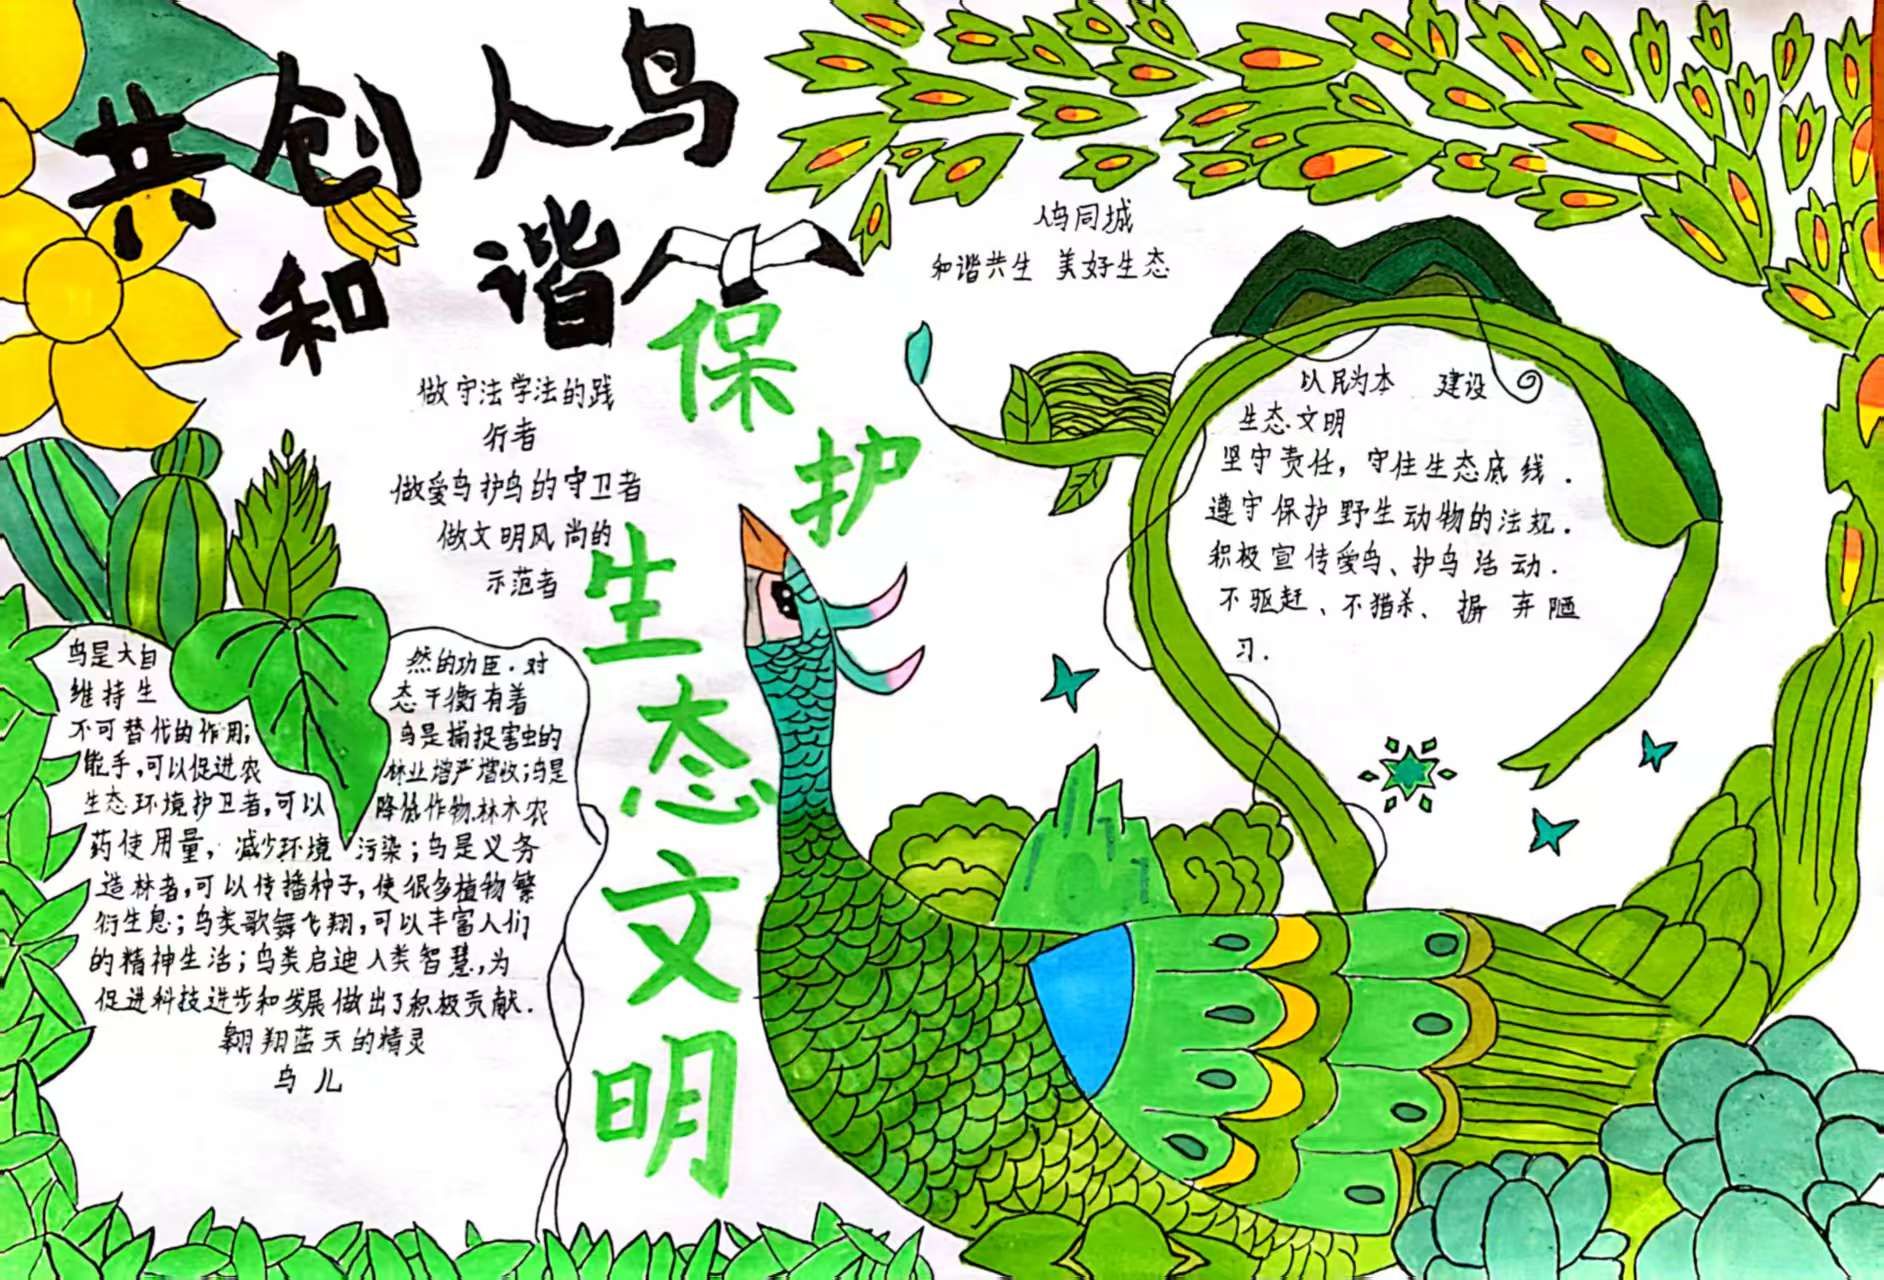 共创人鸟
和谐
保护
生态文明
人鸟同城
和谐共生 美好生态
做守法学法的践
行者
做爱鸟护鸟的守卫者
做文明风尚的
示范者
以民为本 建设
生态文明
坚守责任，守住生态底线.
遵守保护野生动物的法规.
积极宣传爱鸟、护鸟活动.
不驱赶、不猎杀、摒弃陋
习.
鸟是大自 然的功臣.对
维持生 态平衡有着
不可替代的作用; 鸟是捕捉害虫的
能手,可以促进农 林业增产增收;鸟是
生态环境护卫者,可以 降低作物.林木农
药使用量，减少环境 污染;鸟是义务
造林者,可以传播种子,使很多植物繁
衍生息;鸟类歌舞飞翔,可以丰富人们
的精神生活;鸟类启迪人类智慧,为
促进科技进步和发展做出了积极贡献.
翱翔蓝天的精灵
鸟儿